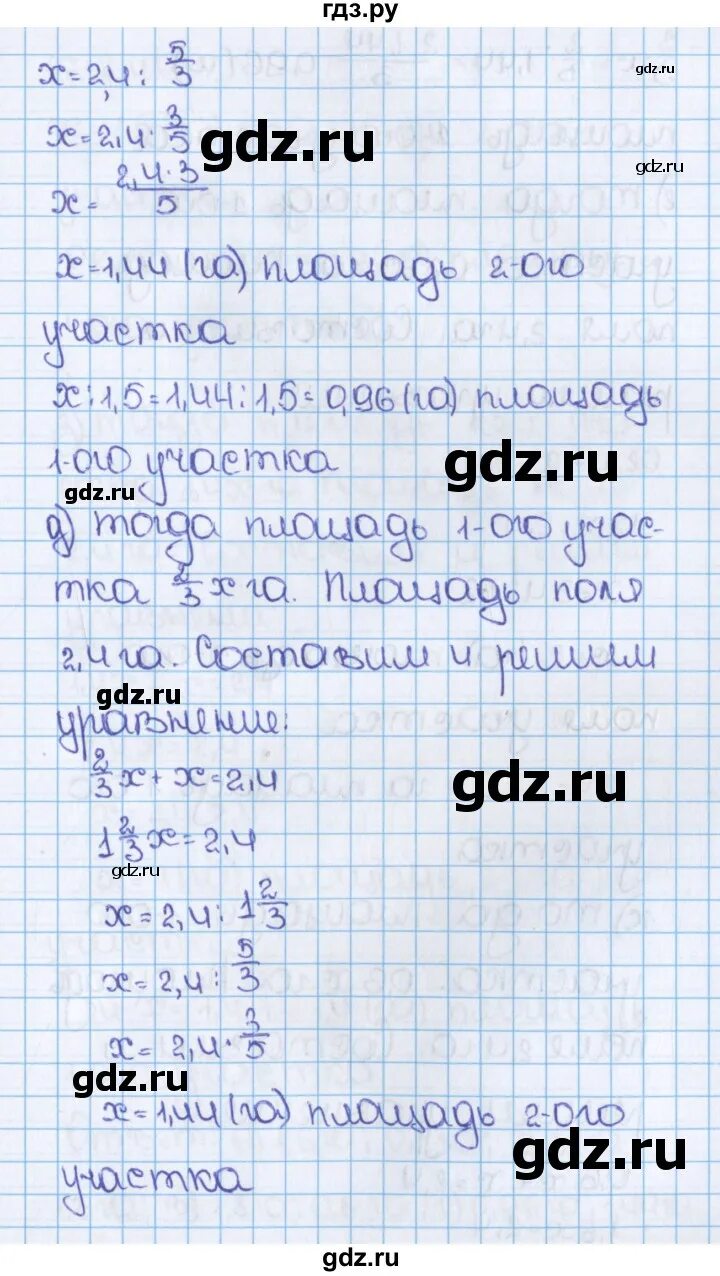 гдз.ру
x = 2,4 : 5/3
gdz.ru
x = 2,4 · 3/5
gdz.ru
gdz.ru
x = 2,4 · 3/5
x = 1,44 (га) площадь 2-ого
участка
x : 1,5 = 1,44 : 1,5 = 0,96 (га) площадь
1-ого участка
gdz.ru
gdz.ru
д) тогда площадь 1-ого учас-
тка 2/3 x га. Площадь поля
2,4 га. Составим и решим
gdz.ru
уравнение:
2/3 x + x = 2,4
gdz.ru
1 2/3 x = 2,4
gdz.ru
x = 2,4 : 1 2/3
x = 2,4 : 5/3
x = 2,4 · 3/5
gdz.ru
x = 1,44 (га) площадь 2-ого
gdz.ru
участка
gdz.ru